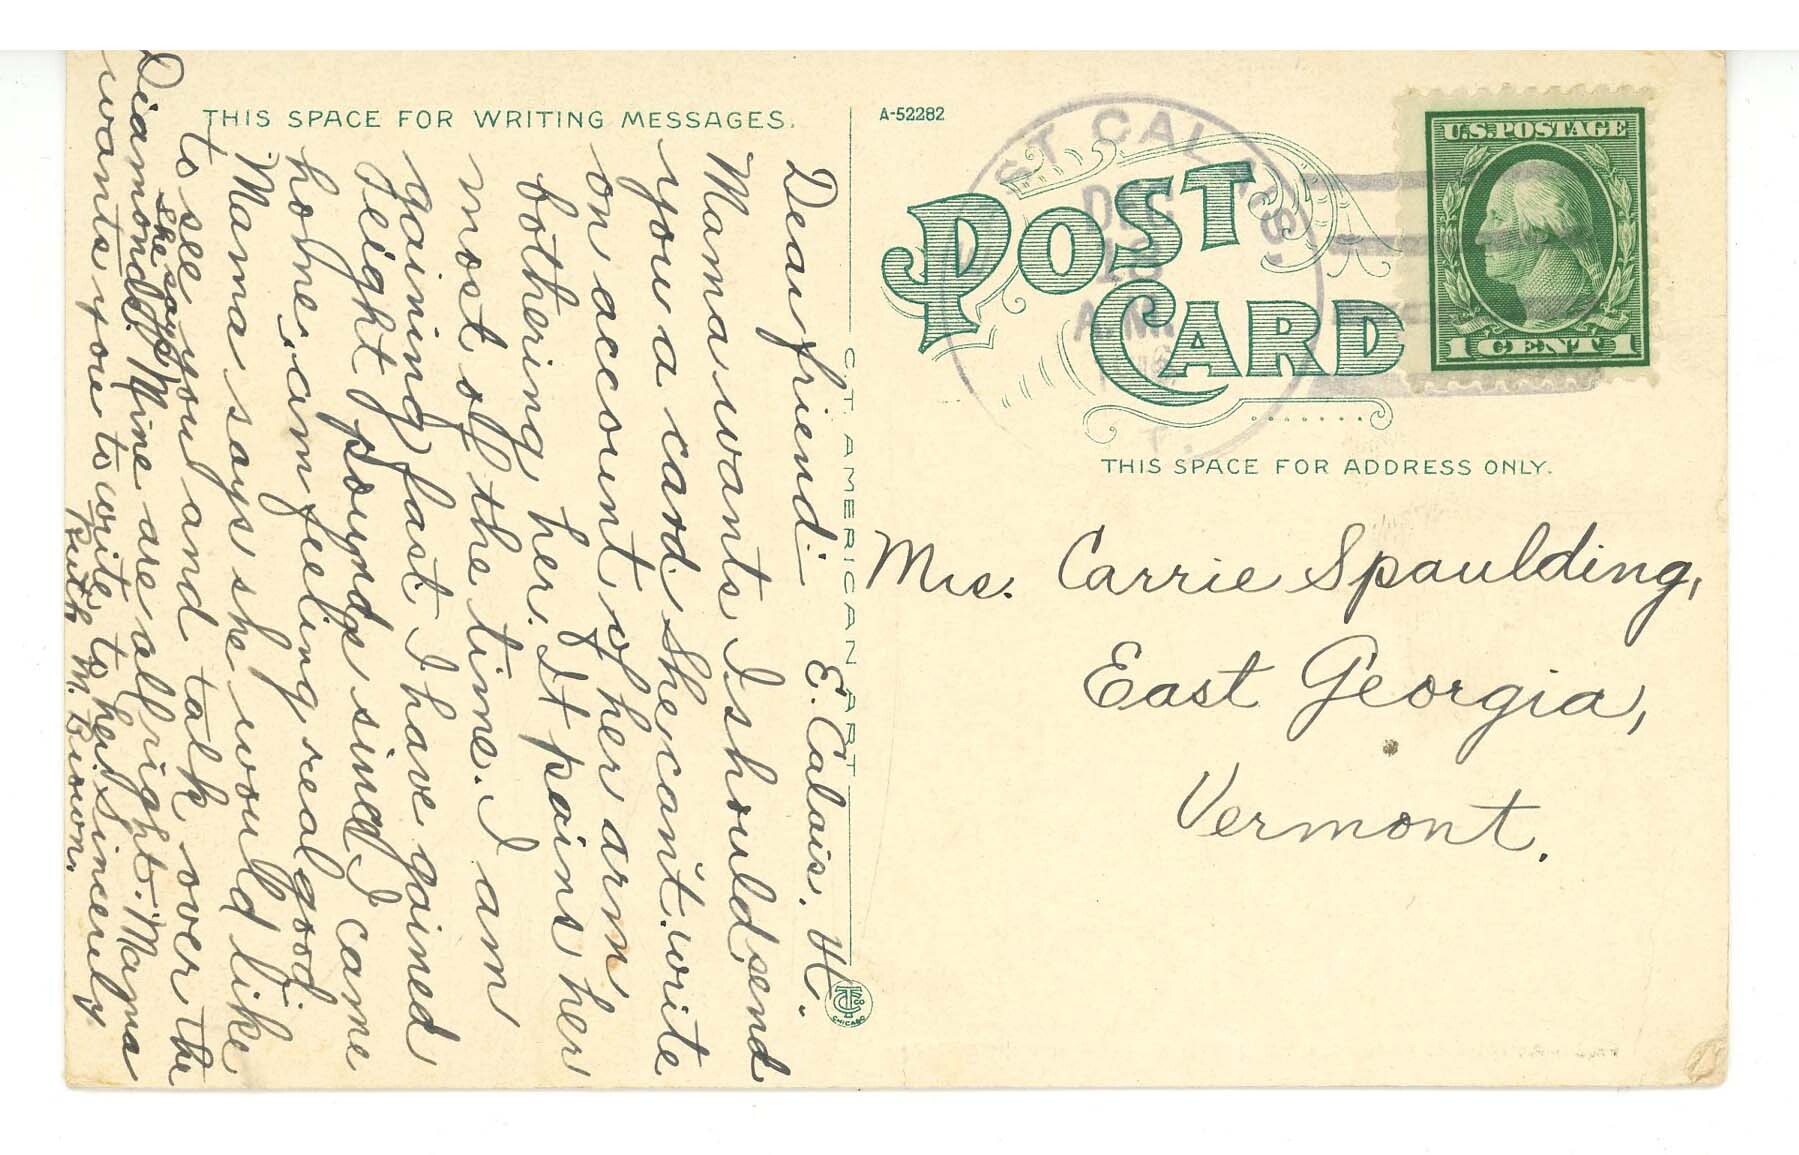 THIS SPACE FOR WRITING MESSAGES.
E. Calais. Vt.
Dear friend:-
Mama wants I should send
you a card. She can't write
on account of her arm
bothering her. It pains her
most of the time. I am
gaining fast. I have gained
eight pounds since I came
home, am feeling real good.
Mama says she would like
to see you and talk over the
she says
Diamonds. Mine are all right. Mama
wants you to write to her. Sincerely
Ruth M. Brown.
C.T. AMERICAN ART
CHICAGO
A-52282
POST CARD
ST CALAIS.
DEC
A.M.
T.
U.S. POSTAGE
1 CENT 1
THIS SPACE FOR ADDRESS ONLY.
Mrs. Carrie Spaulding,
East Georgia,
Vermont.